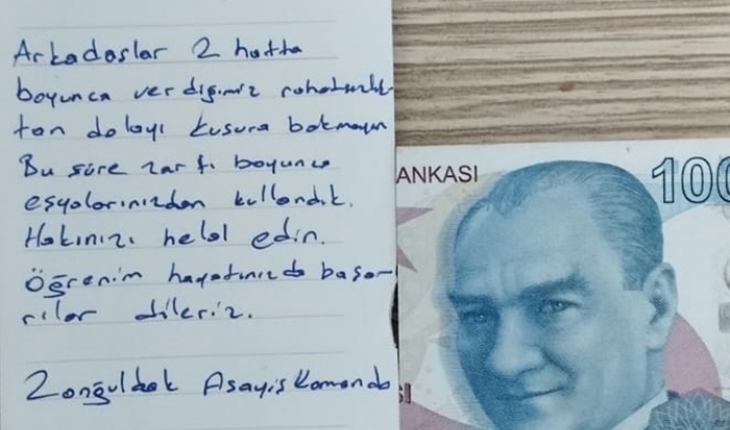 Arkadaşlar 2 hafta
boyunca verdiğimiz rahatsızlık-
tan dolayı kusura bakmayın
Bu süre zarfı boyunca
eşyalarınızdan kullandık.
Hakınızı helal edin.
Öğrenim hayatınızda başa-
rılar dileriz.
Zonguldak Asayiş Komando
ANKASI
100
SI